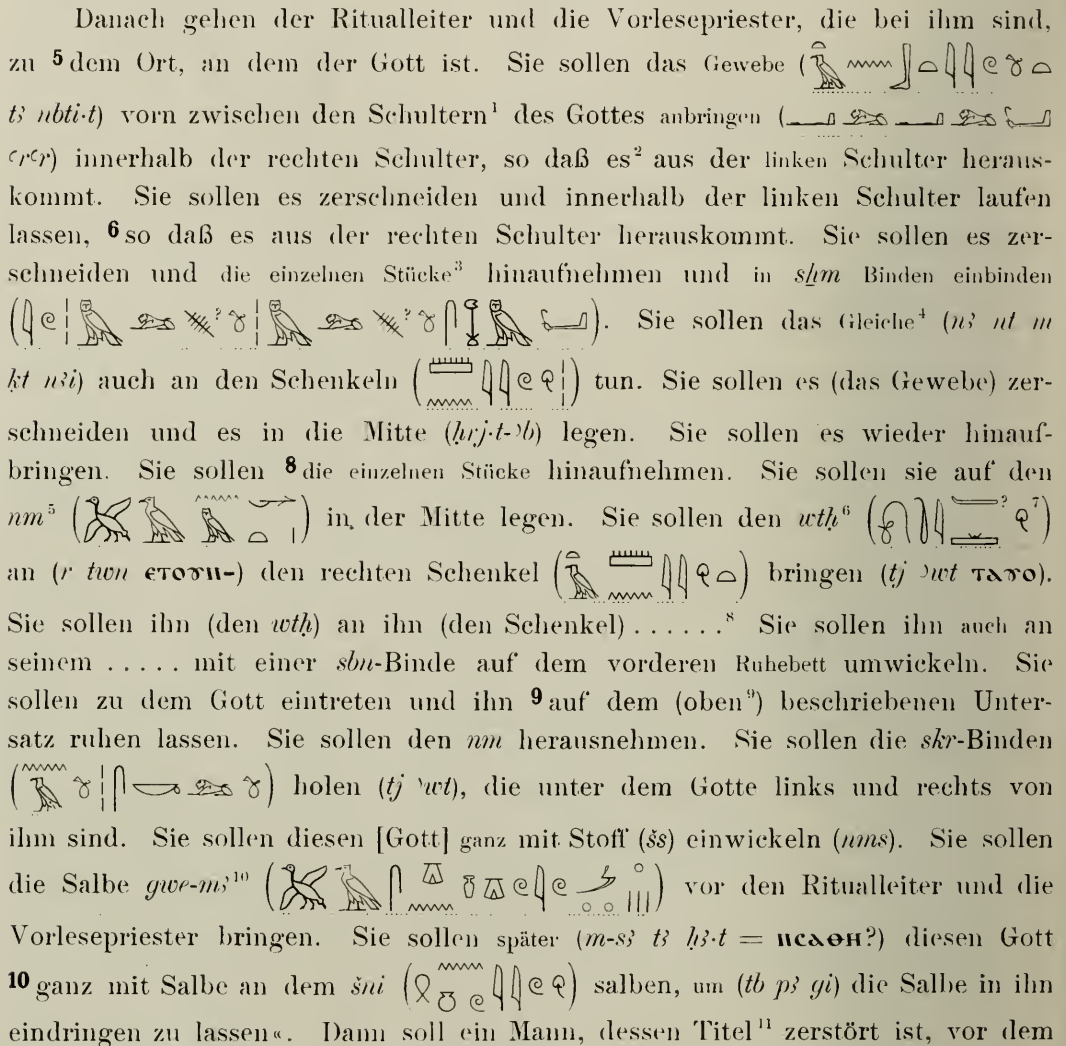 Danach gehen der Ritualleiter und die Vorlesepriester, die bei ihm sind,
zu 5 dem Ort, an dem der Gott ist. Sie sollen das Gewebe (
tꜣ nbti·t) vorn zwischen den Schultern¹ des Gottes anbringen (
ꜥrꜥr) innerhalb der rechten Schulter, so daß es² aus der linken Schulter heraus-
kommt. Sie sollen es zerschneiden und innerhalb der linken Schulter laufen
lassen, 6 so daß es aus der rechten Schulter herauskommt. Sie sollen es zer-
schneiden und die einzelnen Stücke³ hinaufnehmen und in sḫm Binden einbinden
( ). Sie sollen das Gleiche⁴ (nꜣ nt m
kt nꜣi) auch an den Schenkeln ( ) tun. Sie sollen es (das Gewebe) zer-
schneiden und es in die Mitte (ḥrj·t-ꜣb) legen. Sie sollen es wieder hinauf-
bringen. Sie sollen 8 die einzelnen Stücke hinaufnehmen. Sie sollen sie auf den
nm⁵ ( ) in der Mitte legen. Sie sollen den wtḥ⁶ ( ? ⁷)
an (r twn ⲉⲧⲟⲩⲛ-) den rechten Schenkel ( ) bringen (tj ꜣwt ⲧⲁⲩⲟ).
Sie sollen ihn (den wtḥ) an ihn (den Schenkel) . . . . . .⁸ Sie sollen ihn auch an
seinem . . . . . mit einer sbn-Binde auf dem vorderen Ruhebett umwickeln. Sie
sollen zu dem Gott eintreten und ihn 9 auf dem (oben⁹) beschriebenen Unter-
satz ruhen lassen. Sie sollen den nm herausnehmen. Sie sollen die skr-Binden
( ) holen (tj ꜣwt), die unter dem Gotte links und rechts von
ihm sind. Sie sollen diesen [Gott] ganz mit Stoff (šs) einwickeln (nms). Sie sollen
die Salbe gwe-mꜣ¹⁰ ( ) vor den Ritualleiter und die
Vorlesepriester bringen. Sie sollen später (m-sꜣ tꜣ ḥꜣ·t = ⲛⲥⲁⲑⲏ?) diesen Gott
10 ganz mit Salbe an dem šni ( ) salben, um (tb pꜣ gi) die Salbe in ihn
eindringen zu lassen«. Dann soll ein Mann, dessen Titel¹¹ zerstört ist, vor dem